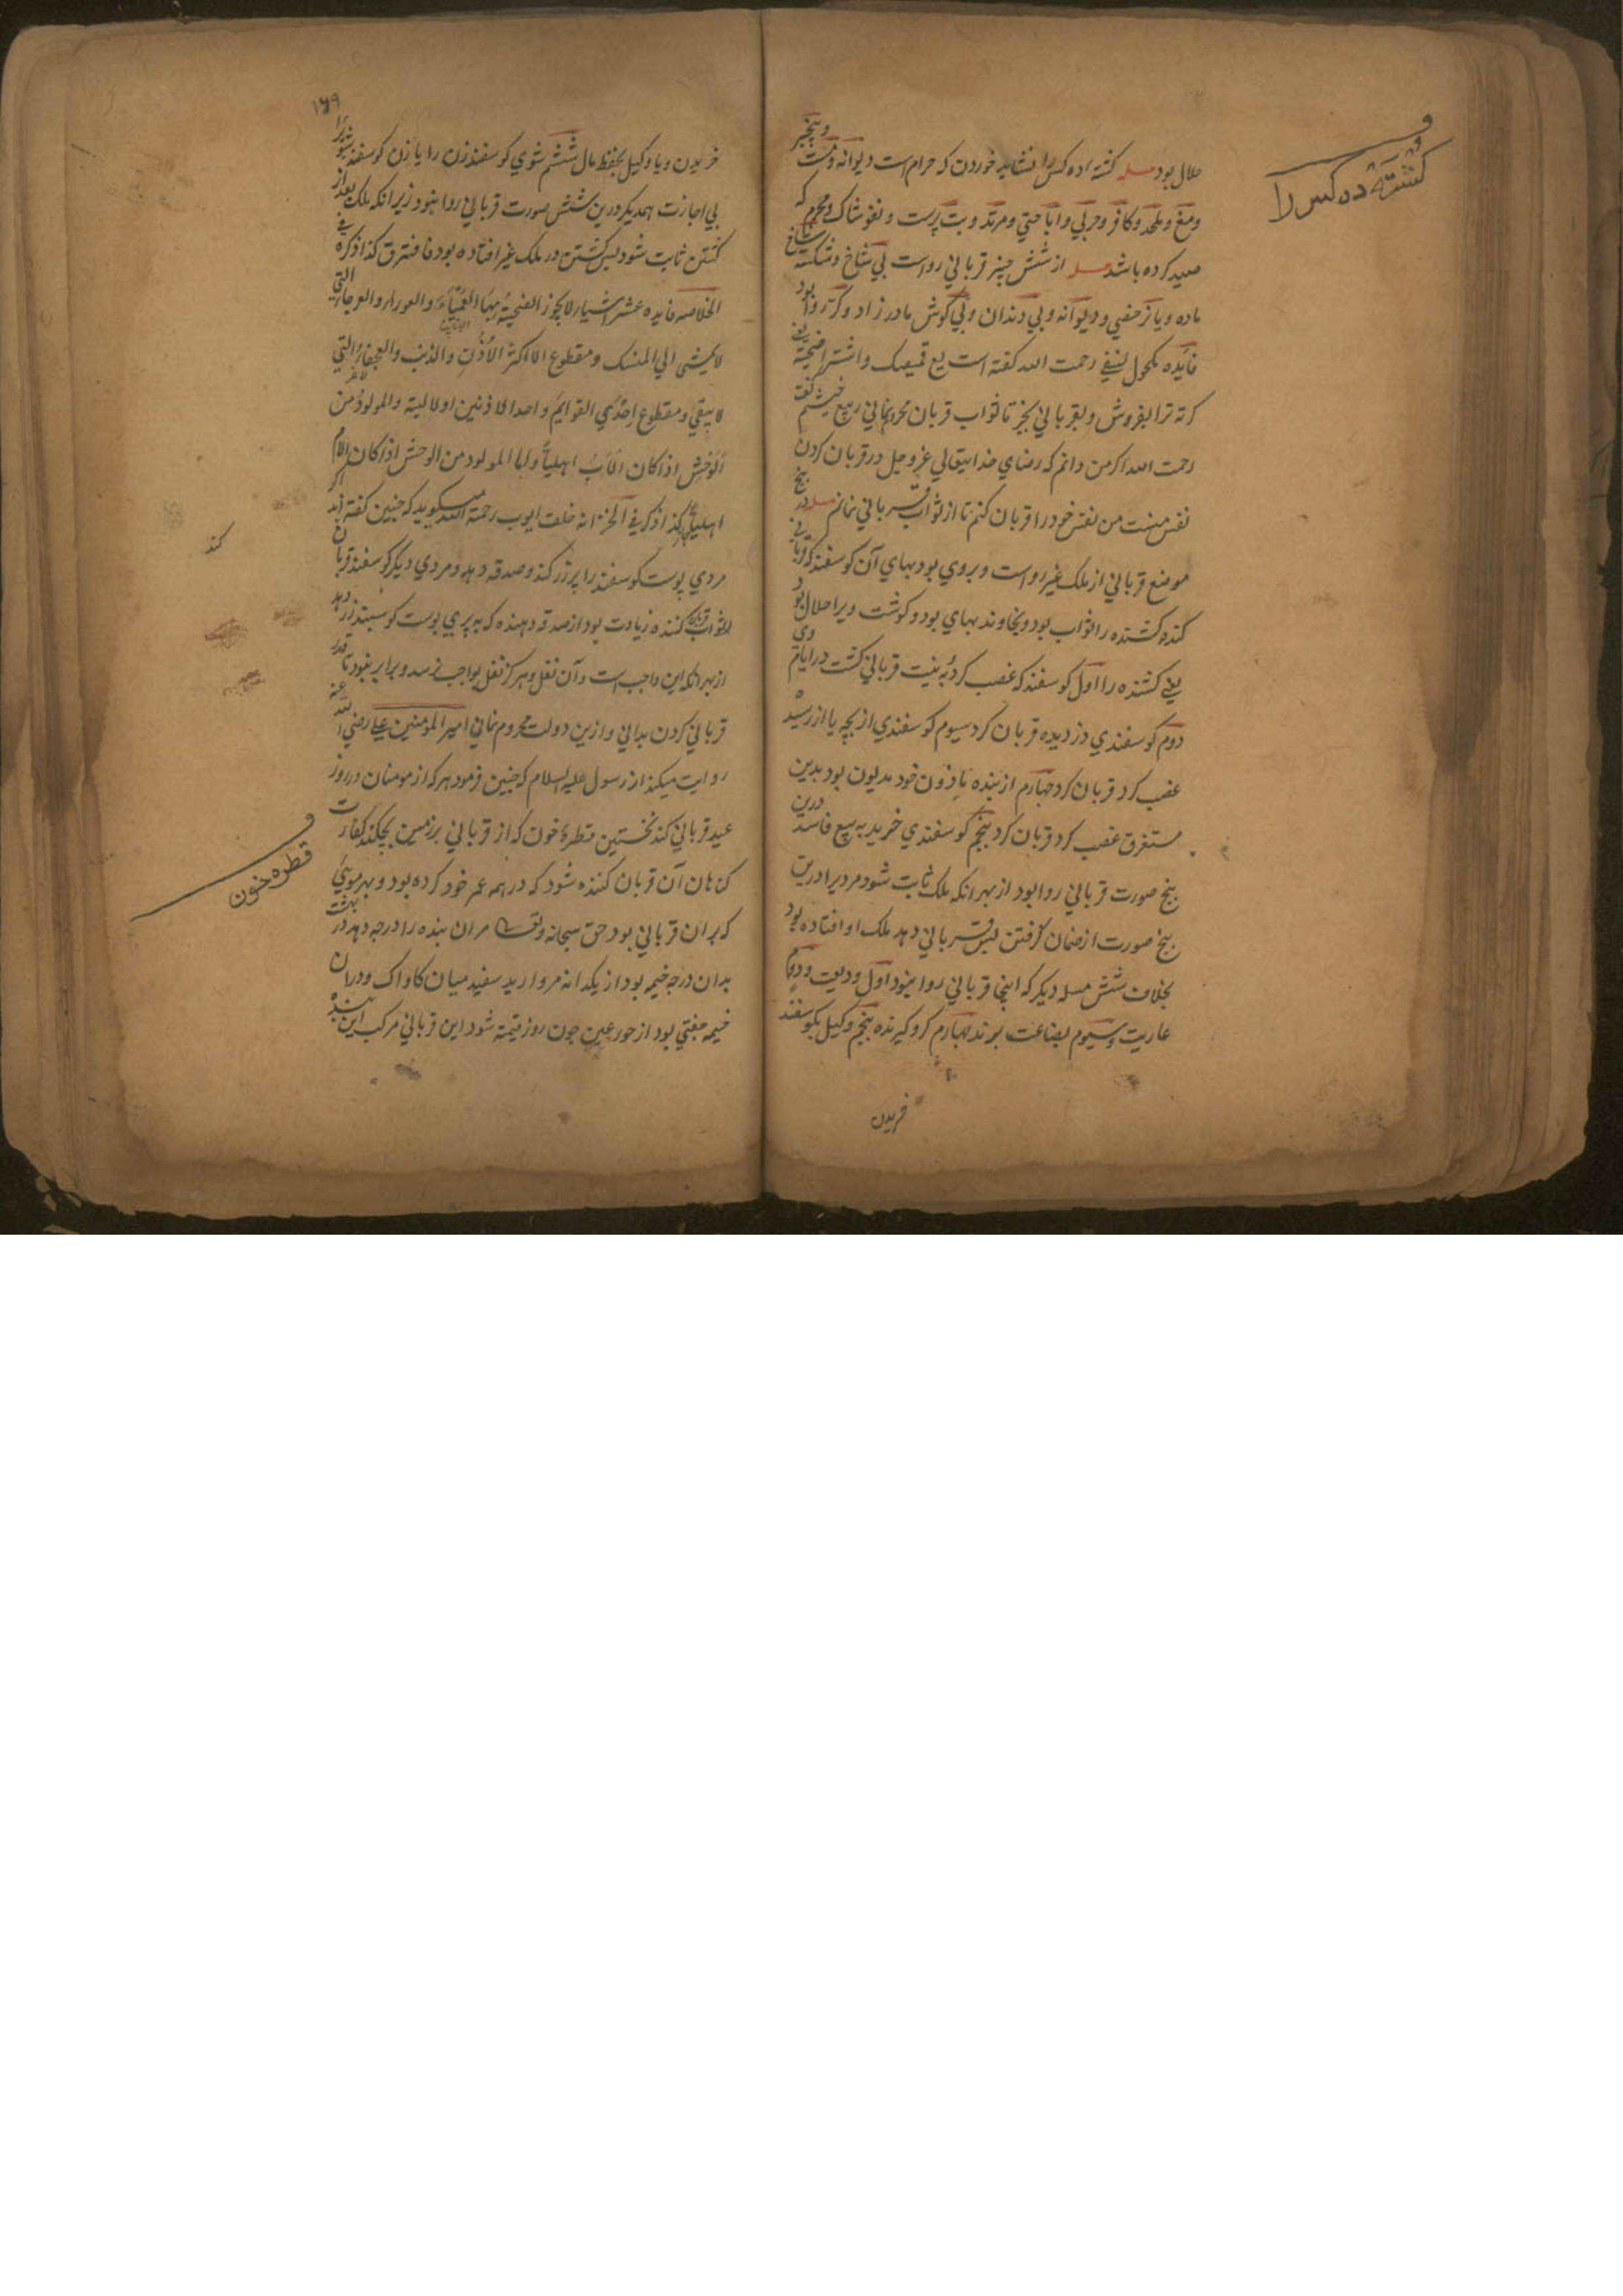 کشتهٔ ده کس را
حلال بود مسله کشته ده کس را نشاید خوردن که حرام است دیوانه و مست
ومغ و ملحد و کافر و حربی و اباحتی و مرتد و بت پرست و نغوشاک و محرم که
صید کرده باشد مسله از شش چیز قربانی رواست بی شاخ و شکسته شاخ
ماده و یا نر خصی و دیوانه و بی دندان و بی کوش مادر زاد و کر روا بود
فایده مکحول نسفی رحمت الله کفته است بع قمیصک و اشتر اضحیة یعنی
کرته ترا بفروش و قربانی بخر تا ثواب قربان محروم نمانی ربیع خیثم کفت
رحمت الله اکر من دانم که رضای خدایتعالی عز و جل در قربان کردن
نفس منست من نفس خود را قربان کنم تا از ثواب قربانی نمانم مسله در پنج
موضع قربانی از ملک غیر رواست و بروی بود بهای آن کوسفند که قربانی
کند کشنده را ثواب بود و بخاوند بهای بود و کوشت ویرا حلال بود
یعنی کشنده را اول کوسفند که غصب کرد و به نیت قربانی کشت در ایام وی
دوم کوسفندی دزدیده قربان کرد سیوم کوسفندی از بچه یا از رسیده
غصب کرد قربان کرد چهارم از بنده ماذون خود مدیون بود بدین
مستغرق غصب کرد قربان کرد پنجم کوسفندی خرید به بیع فاسد درین
پنج صورت قربانی روا بود از بهر انکه ملک ثابت شود مردیرا درین
پنج صورت از ضمان کرفتن پس قربانی دهد ملک او افتاده بود
بخلاف شش مسله دیکر که اینجا قربانی روا نبود اول ودیعت و دوم
عاریت و سیوم بضاعت برند چهارم کرو کیرنده پنجم وکیل بکوسفند
خریدن
۱۶۹
خریدن و یا وکیل بحفظ مال ششم شوی کوسفند زن را یا زن کوسفند شویرا
بی اجازت همدیکر درین شش صورت قربانی روا نبود زیرانکه ملک بعد از
کشتن ثابت شود پس کشتن در ملک غیر افتاده بود فافترق کذا ذکره فی
الخلاصه فایده عشر اشیاء لا یجوز الضحیة بها العمیاء و العوراء و العرجاء التی
لا یمشی الی المنسک و مقطوع الا اکثر الاذن و الذنب و العجفاء التی
لا یبقی و مقطوع احدی القوایم و احد الاذنین او لالیة و المولود من
الوحش اذا کان الاب اهلیا و اما المولود من الوحش اذا کان الام
اهلیا کذا ذکر فی الخزانه خلف ایوب رحمة الله میکوید که چنین کفته اند اکر
مردی پوست کوسفند را پر زر کند و صدقه دهد و مردی دیکر کوسفند قربان
کند
ثواب قربان کننده زیادت بود از صدقه دهنده که به پری پوست کوسبند زر دهد
از بهر انکه این واجب است و آن نفل و هرکز نفل بواجب نرسد و برابر نبود تا قدر
قربانی کردن بدانی و ازین دولت محروم نمانی امیر المومنین علی رضی الله عنه
روایت میکند از رسول علیه السلام که چنین فرمود هر که از مومنان در روز
عید قربانی کند نخستین قطرهٔ خون که از قربانی بر زمین بچکد کفارت
قطره خون
کناهان آن قربان کننده شود که در همه عمر خود کرده بود و بهر مویی
که بر ان قربانی بود حق سبحانه و تعالی مر ان بنده را درجه دهد در بهشت
بدان درجه خیمه بود از یکدانه مروارید سفید میان کاواک و در ان
خیمه جفتی بود از حور عین چون روز قیمة شود این قربانی مرکب این بنده